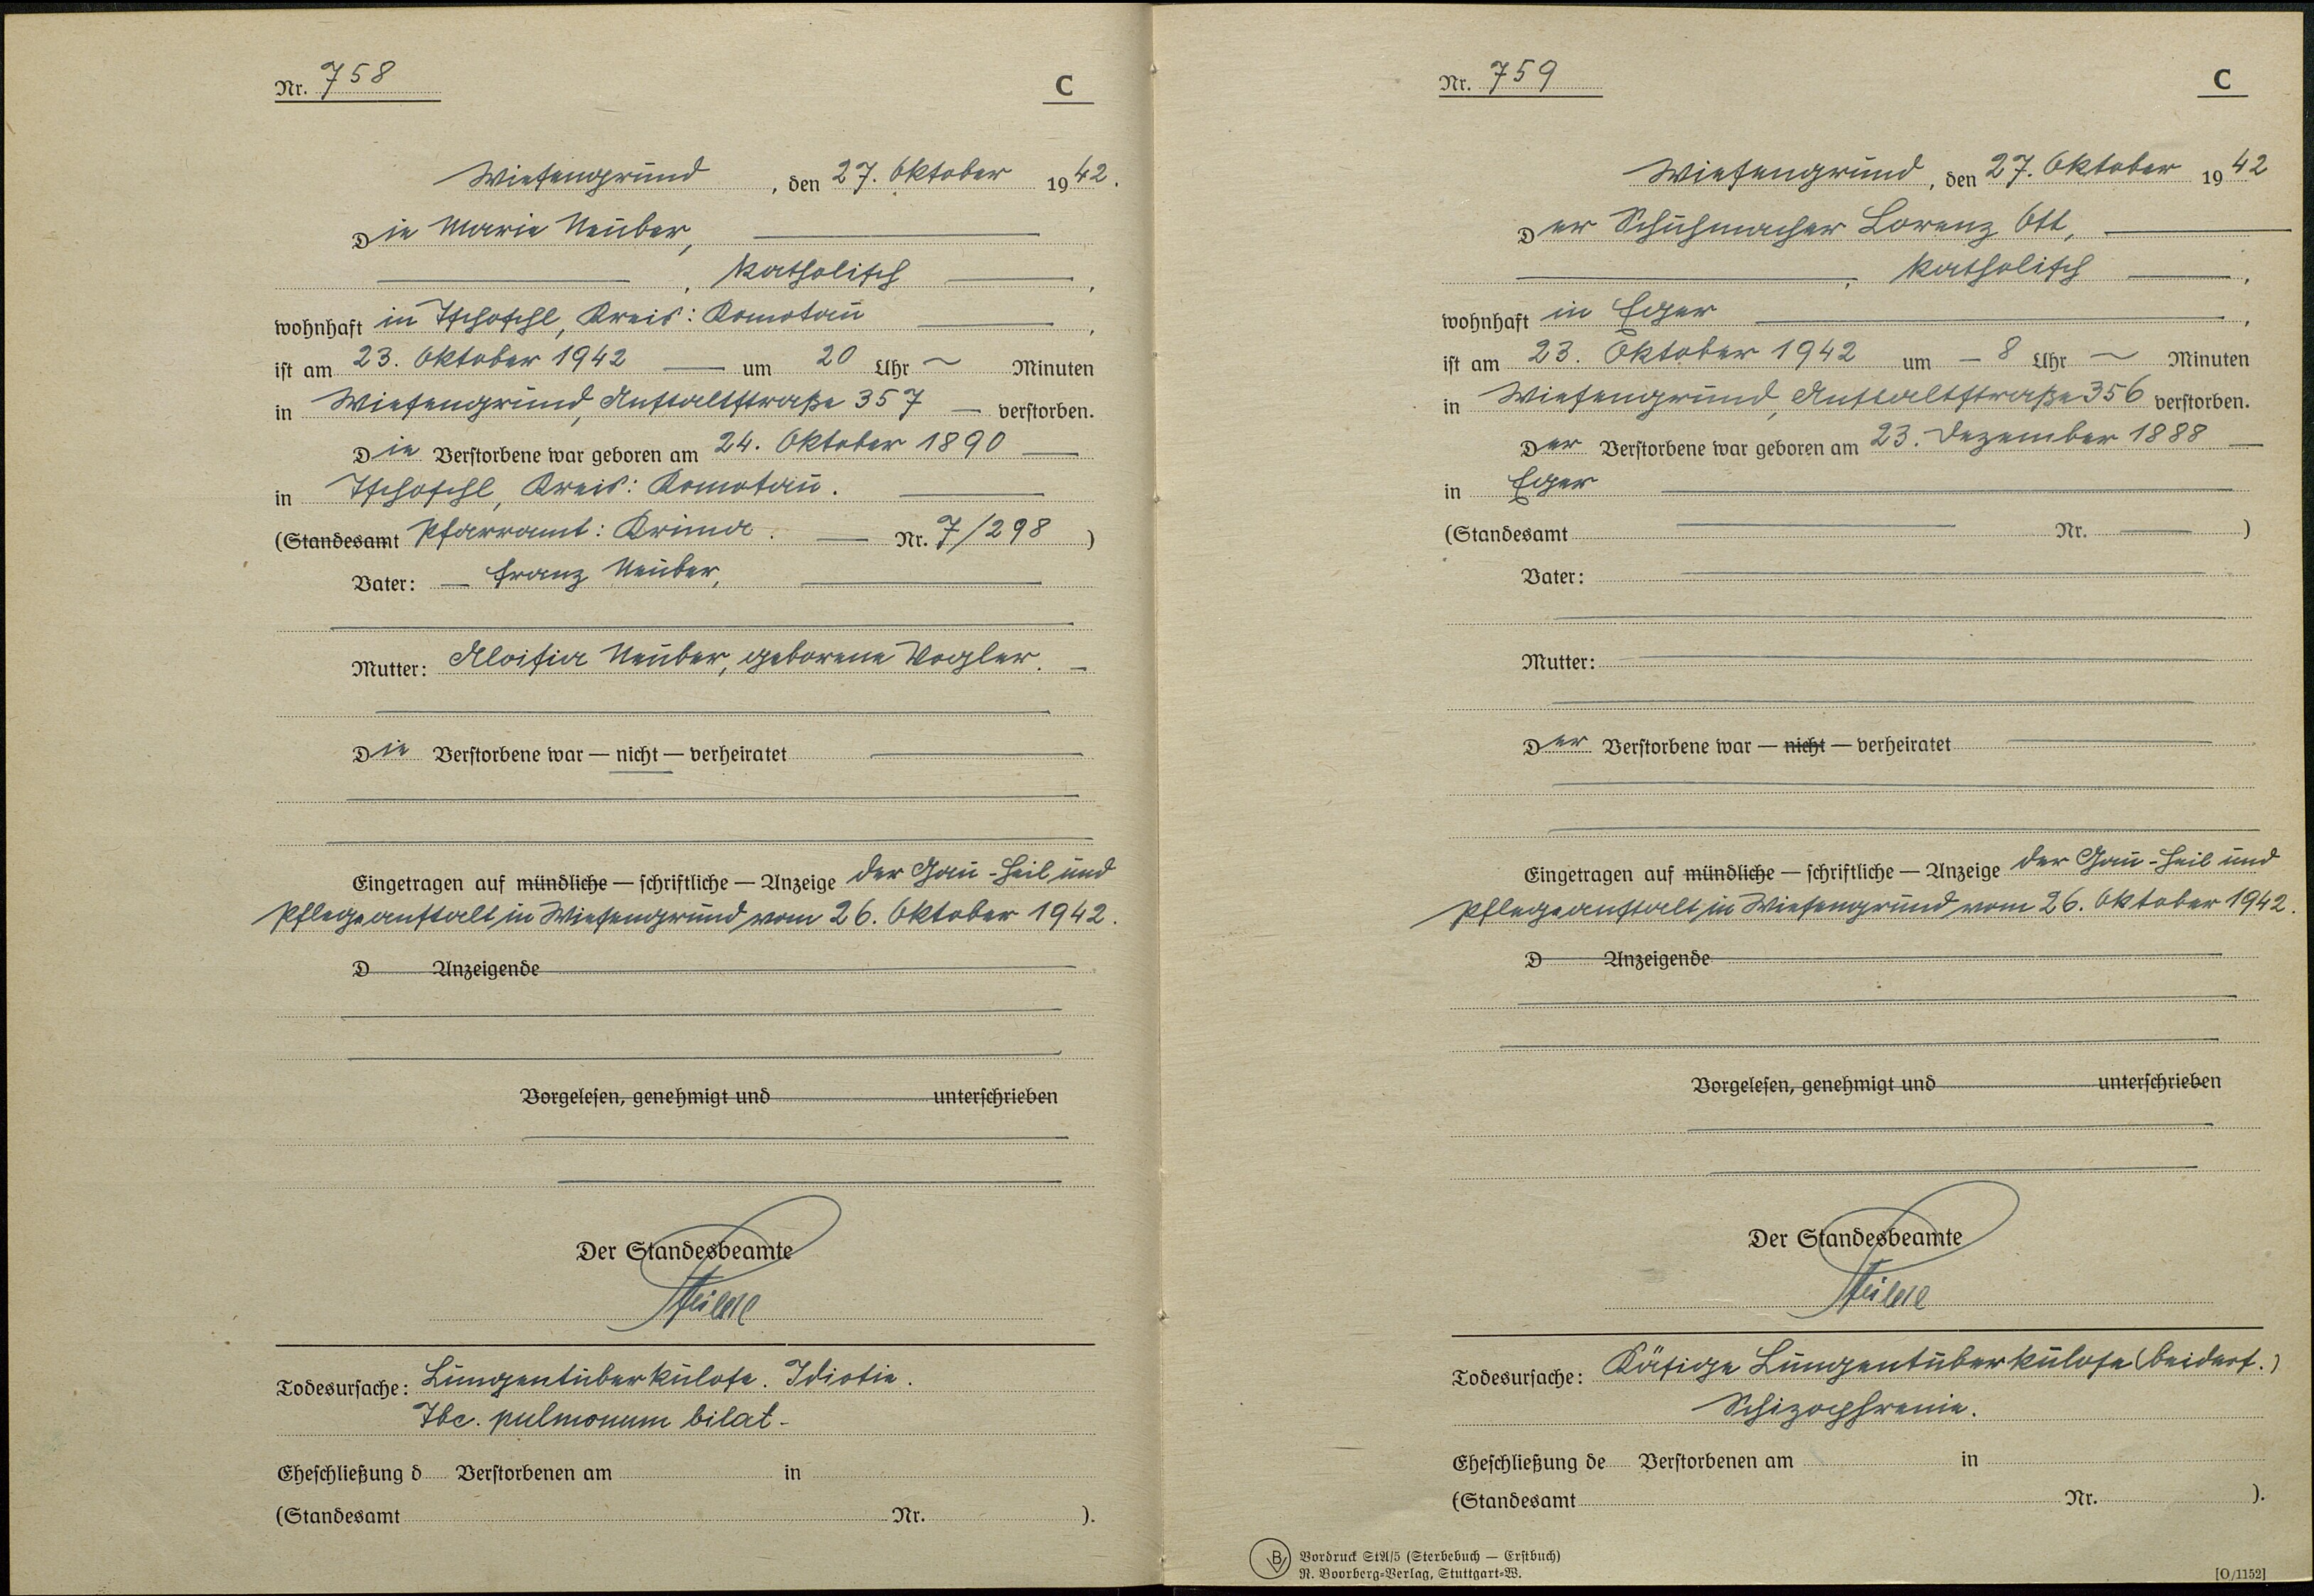 Nr. 758
C
Wiesengrund, den 27. Oktober 1942.
Die Marie Neuber,
, katholisch ,
wohnhaft in Tschoschl, Kreis: Komotau ,
ist am 23. Oktober 1942 um 20 Uhr Minuten
in Wiesengrund, Anstaltstraße 357 verstorben.
Die Verstorbene war geboren am 24. Oktober 1890
in Tschoschl, Kreis: Komotau.
(Standesamt Pfarramt: Krima. Nr. 7/298 )
Vater: Franz Neuber,
Mutter: Aloisia Neuber, geborene Vogler.
Die Verstorbene war — nicht — verheiratet
Eingetragen auf mündliche — schriftliche — Anzeige der Gau-Heil und
Pflegeanstalt in Wiesengrund vom 26. Oktober 1942.
D Anzeigende
Vorgelesen, genehmigt und unterschrieben
Der Standesbeamte
Todesursache: Lungentuberkulose. Idiotie.
Tbc. pulmonum bilat-
Eheschließung d Verstorbenen am in
(Standesamt Nr. ).
Nr. 759
C
Wiesengrund, den 27. Oktober 1942
Der Schuhmacher Lorenz Ott,
, katholisch ,
wohnhaft in Eger ,
ist am 23. Oktober 1942 um - 8 Uhr Minuten
in Wiesengrund, Anstaltstraße 356 verstorben.
Der Verstorbene war geboren am 23. Dezember 1888
in Eger
(Standesamt Nr. )
Vater:
Mutter:
Der Verstorbene war — nicht — verheiratet
Eingetragen auf mündliche — schriftliche — Anzeige der Gau-Heil und
Pflegeanstalt in Wiesengrund vom 26. Oktober 1942.
D Anzeigende
Vorgelesen, genehmigt und unterschrieben
Der Standesbeamte
Todesursache: Käsige Lungentuberkulose (beiders.)
Schizophrenie.
Eheschließung de Verstorbenen am in
(Standesamt Nr. ).
B Vordruck StA/5 (Sterbebuch — Erstbuch)
R. Boorberg-Verlag, Stuttgart-W.
[O/1152]